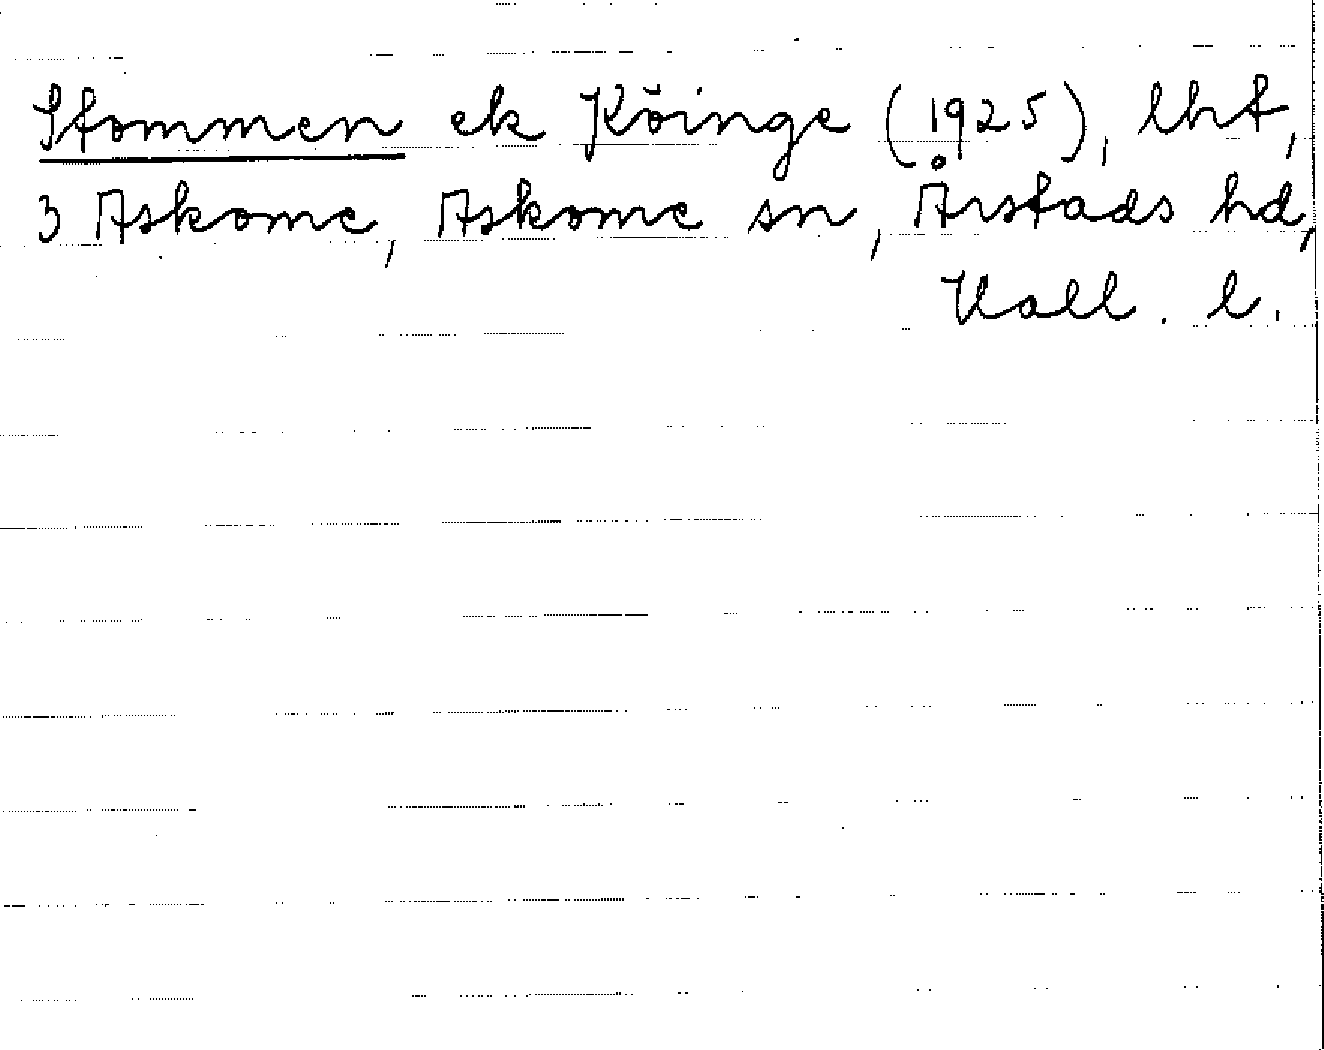 Stommen ek Köinge (1925), lht,
3 Askome, Askome sn, Årstads hd,
Hall. l.